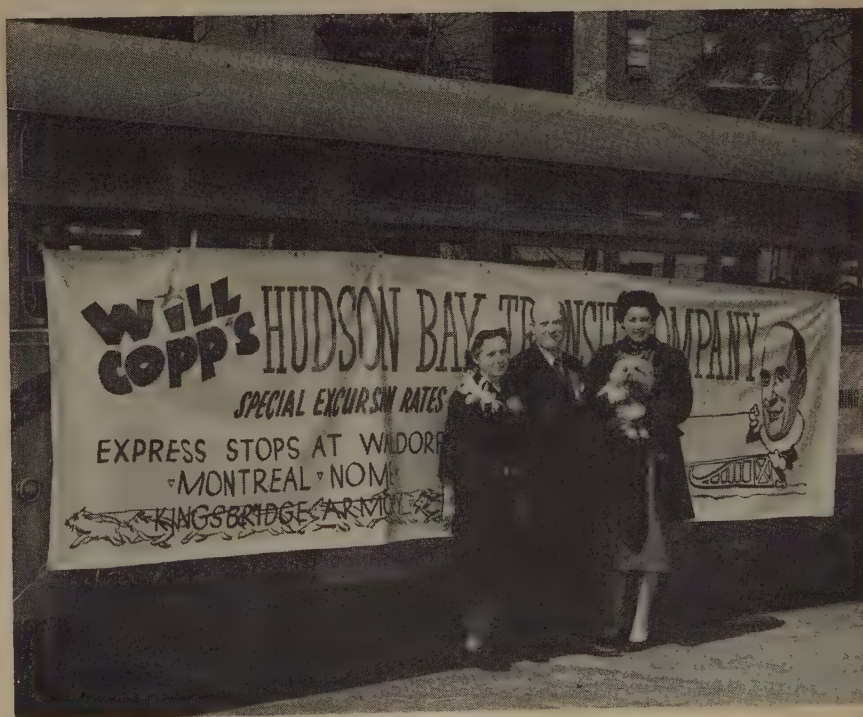 WILL
COPP'S
HUDSON BAY TRANSIT COMPANY
SPECIAL EXCURSIN RATES
EXPRESS STOPS AT WALDORF
MONTREAL NOM
KINGSBRIDGE